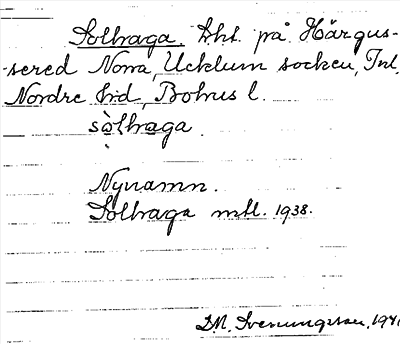 Solhaga. Lht. på Härgus-
sered Norra, Ucklum socken, Inl.
Nordre hd, Bohus l.
sòlhaga.
Nynamn.
Solhaga mtl. 1938.
D.M. Svenungsson, 194